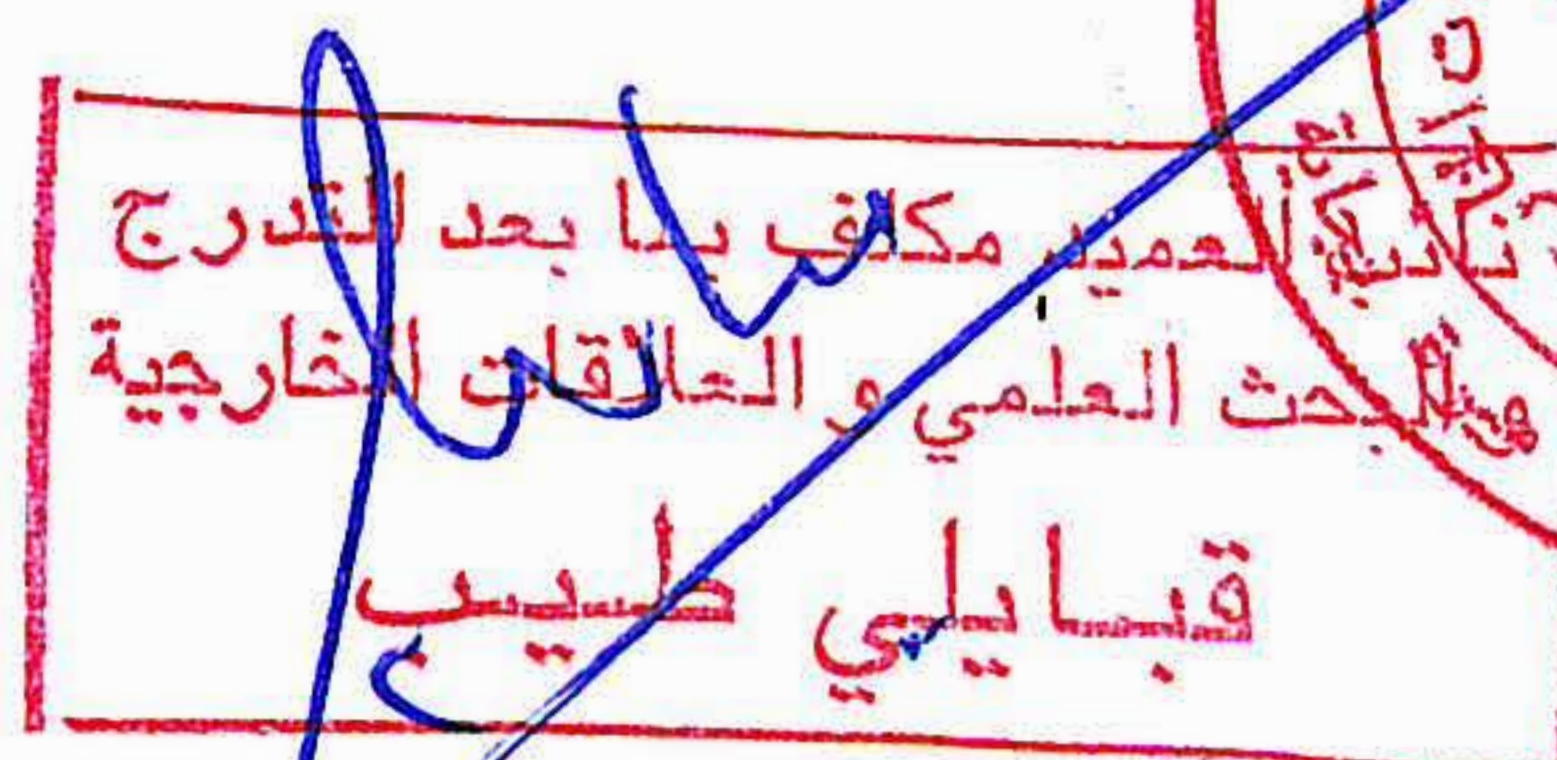 العميد مكلف بما بعد التدرج
و البحث العلمي و العلاقات الخارجية
قبايلي طيب